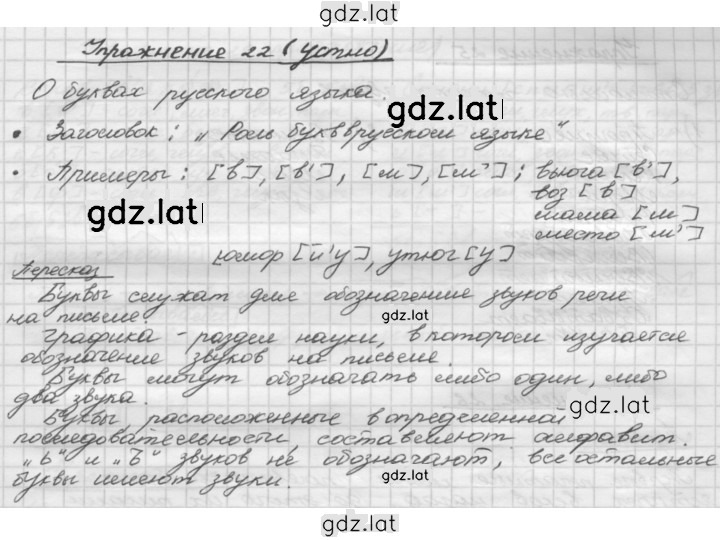 gdz.lat
Упражнение 22 (устно)
О буквах русского языка.
gdz.lat
• Заголовок: „Роль букв в русском языке"
• Примеры: [в], [в'], [м], [м']; вьюга [в'],
воз [в]
gdz.lat
мама [м]
место [м']
юмор [й'у], утюг [у]
Пересказ
Буквы служат для обозначение звуков речи
на письме.
gdz.lat
Графика - раздел науки, в котором изучается
обозначение звуков на письме.
Буквы могут обозначать либо один, либо
два звука.
gdz.lat
Буквы, расположенные в определенной
последовательности, составляют алфавит.
„ь" и „ъ" звуков не обозначают, все остальные
буквы имеют звуки.
gdz.lat
gdz.lat